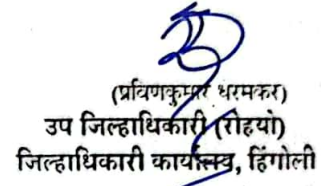 (प्रविणकुमार धरमकर)
उप जिल्हाधिकारी (रोहयो)
जिल्हाधिकारी कार्यालय, हिंगोली